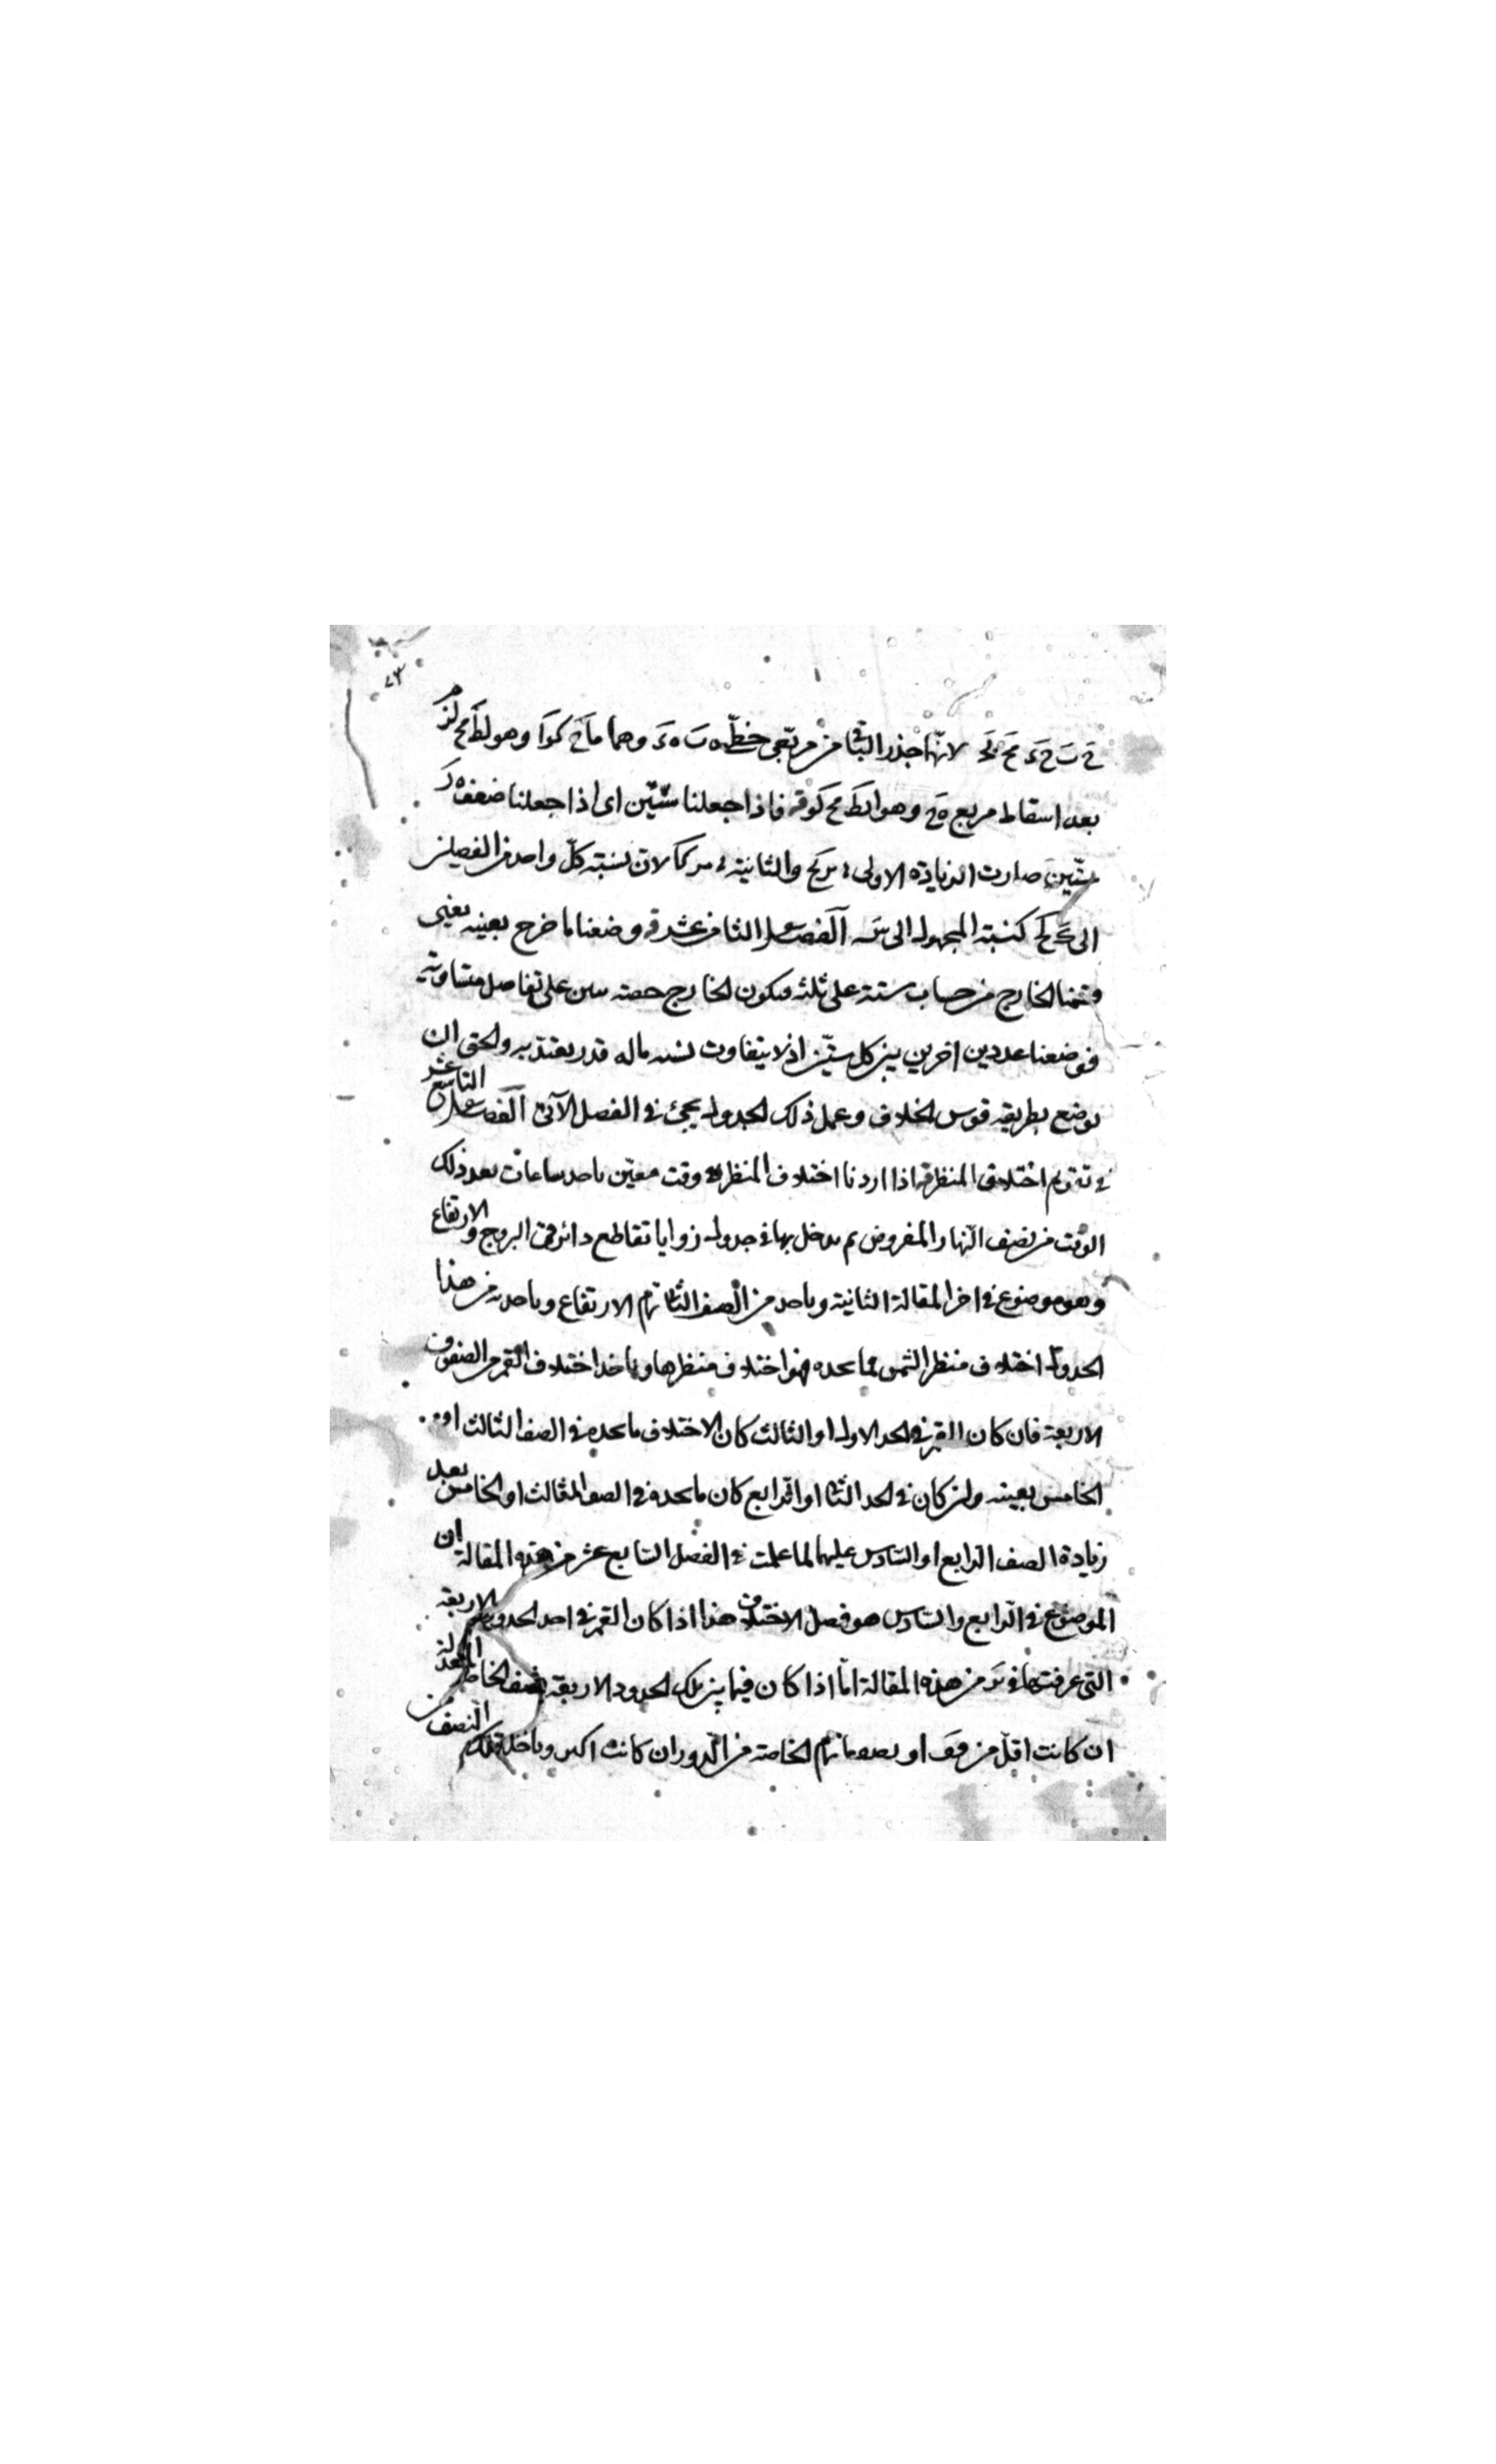 ٤٣
لانها جذر الباقى من مربعى خطى وهما وهو
بعد اسقاط مربع وهو فاذا جعلنا ستين اى اذا جعلنا ضعف
ستين صارت الزيادة الاولى والثانية لان نسبة كل واحد من الفصلين
الى كنسبة المجهول الى س الفصل الثامن عشر قوله وضعنا ما خرج بعينه يعنى
قسمنا الخارج من حساب ستة على ثلثة فيكون الخارج حصة على تفاصل متساوية
فوضعنا عددين اخرين بين كل ستين اذ لا يتفاوت ماله قدر يعتد به والحق ان
يوضع بطريقة قوس الخلاف وعمل ذلك الجدول يجئ فى الفصل الآتى الفصل التاسع عشر
فى تقويم اختلاف المنظر قوله اذا اردنا اختلاف المنظر وقت معين ناخذ ساعات بعد ذلك
الوقت من نصف النهار المفروض ثم ندخل بها فى جدول زوايا تقاطع دائرتى البروج والارتفاع
وهو موضوع فى اخر المقالة الثانية وناخذ من الصف الثانى تمام الارتفاع وناخذ به من هذا
الجدول اختلاف منظر الشمس فما نجده فهو اختلاف منظرها وناخذ اختلاف القمر من الصفوف
الاربعة فان كان القمر فى الحد الاول او الثالث كان الاختلاف ما نجده فى الصف الثالث او
الخامس بعينه وان كان فى الحد الثانى او الرابع كان ما نجده فى الصف الثالث او الخامس بعد
زيادة الصف الرابع او السادس عليهما لما علمت فى الفصل السابع عشر من هذه المقالة ان
الموضوع فى الرابع والسادس هو فصل الاختلاف هذا اذا كان القمر فى احد الحدود الاربعة
التى عرفتها فى من هذه المقالة اما اذا كان فيما بين تلك الحدود الاربعة نصف الخاصة المعدلة
ان كانت اقل من قف او نصف تمام الخاصة من الدور ان كانت اكثر وناخذ من النصف